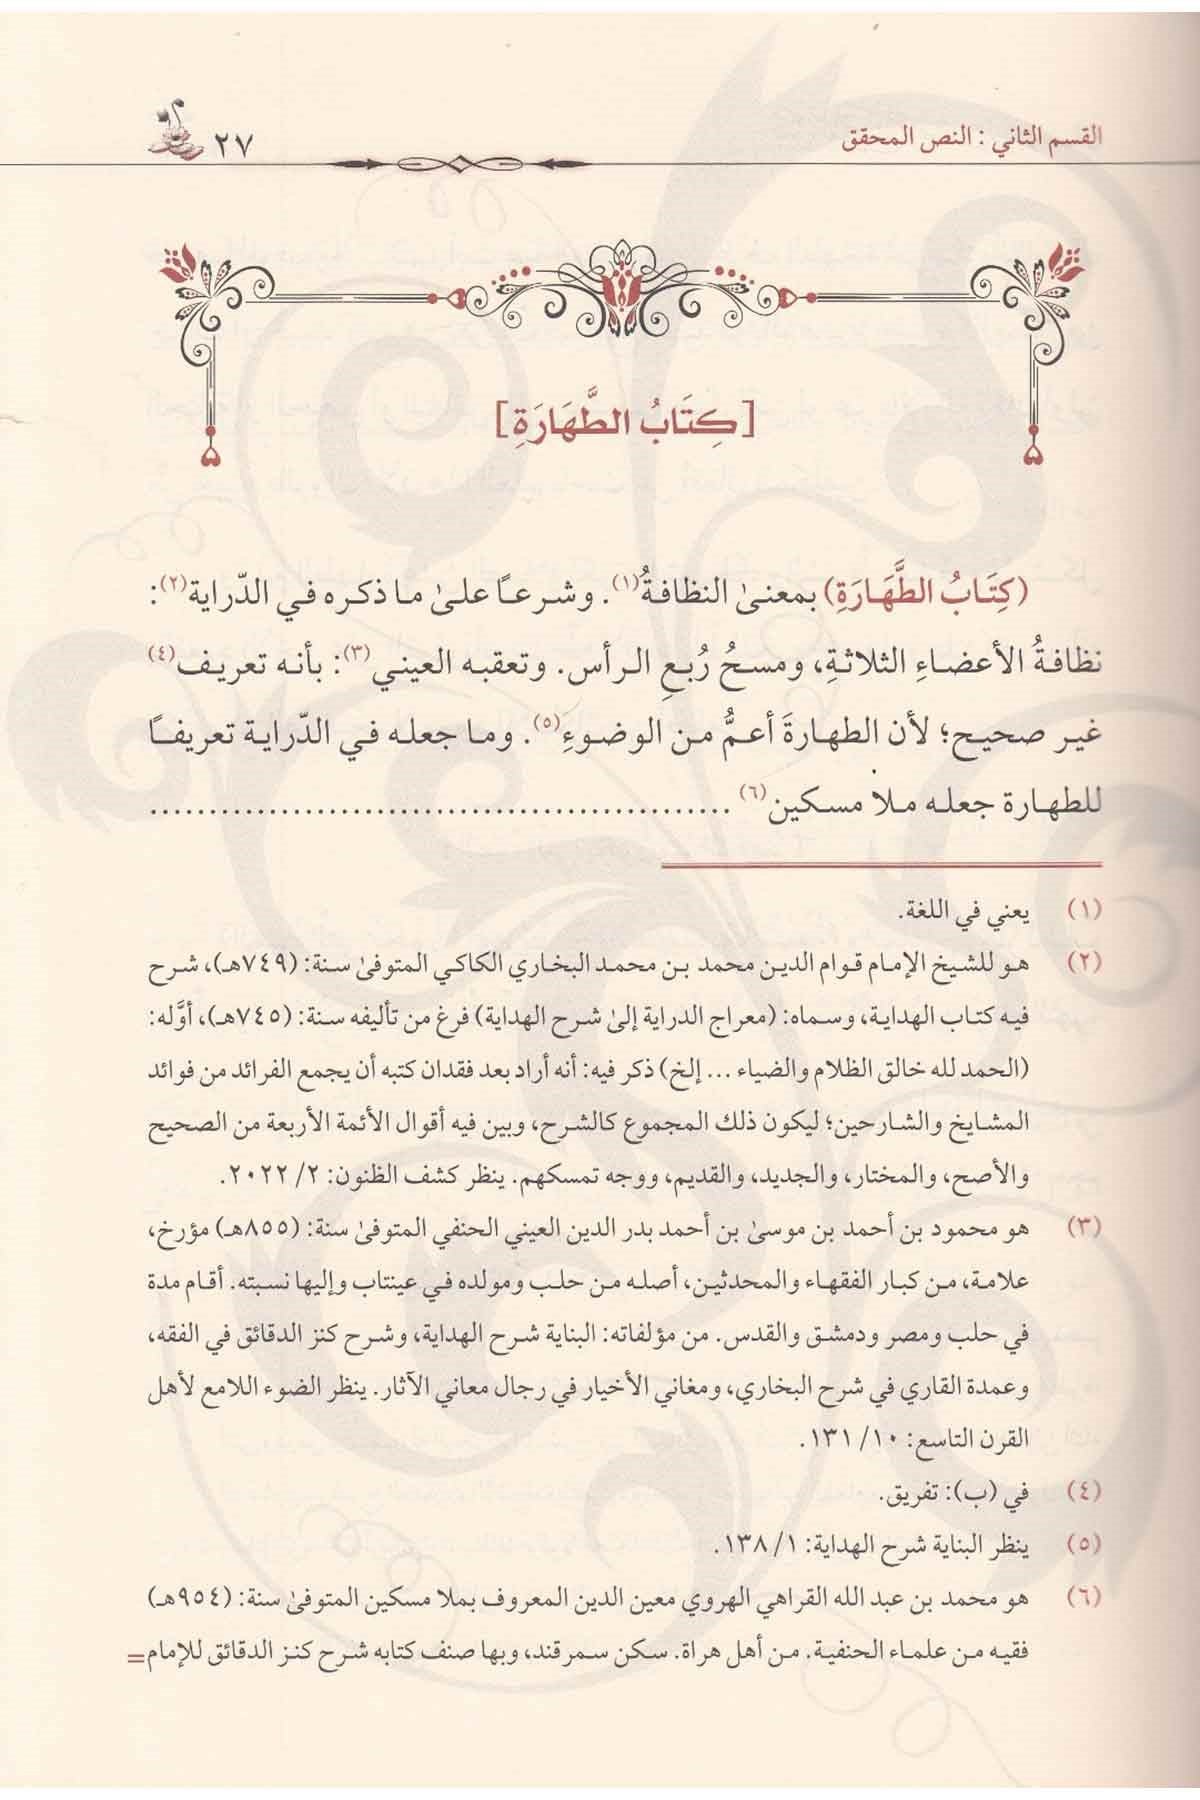 القسم الثاني : النص المحقق
٢٧
[كِتَابُ الطَّهَارَةِ]
(كِتَابُ الطَّهَارَةِ) بمعنىٰ النظافةُ(١). وشرعًا علىٰ ما ذكره في الدّراية(٢):
نظافةُ الأعضاءِ الثلاثةِ، ومسحُ رُبعِ الرأس. وتعقبه العيني(٣): بأنه تعريف(٤)
غير صحيح؛ لأن الطهارةَ أعمُّ من الوضوءِ(٥). وما جعله في الدّراية تعريفًا
للطهارة جعله ملا مسكين(٦) ................................................
(١) يعني في اللغة.
(٢) هو للشيخ الإمام قوام الدين محمد بن محمد البخاري الكاكي المتوفىٰ سنة: (٧٤٩هـ)، شرح
فيه كتاب الهداية، وسماه: (معراج الدراية إلىٰ شرح الهداية) فرغ من تأليفه سنة: (٧٤٥هـ)، أوَّله:
(الحمد لله خالق الظلام والضياء ... إلخ) ذكر فيه: أنه أراد بعد فقدان كتبه أن يجمع الفرائد من فوائد
المشايخ والشارحين؛ ليكون ذلك المجموع كالشرح، وبين فيه أقوال الأئمة الأربعة من الصحيح
والأصح، والمختار، والجديد، والقديم، ووجه تمسكهم. ينظر كشف الظنون: ٢/ ٢٠٢٢.
(٣) هو محمود بن أحمد بن موسىٰ بن أحمد بدر الدين العيني الحنفي المتوفىٰ سنة: (٨٥٥هـ) مؤرخ،
علامة، من كبار الفقهاء والمحدثين، أصله من حلب ومولده في عينتاب وإليها نسبته. أقام مدة
في حلب ومصر ودمشق والقدس. من مؤلفاته: البناية شرح الهداية، وشرح كنز الدقائق في الفقه،
وعمدة القاري في شرح البخاري، ومغاني الأخيار في رجال معاني الآثار. ينظر الضوء اللامع لأهل
القرن التاسع: ١٠/ ١٣١.
(٤) في (ب): تفريق.
(٥) ينظر البناية شرح الهداية: ١/ ١٣٨.
(٦) هو محمد بن عبد الله القراهي الهروي معين الدين المعروف بملا مسكين المتوفىٰ سنة: (٩٥٤هـ)
فقيه من علماء الحنفية. من أهل هراة. سكن سمرقند، وبها صنف كتابه شرح كنز الدقائق للإمام =